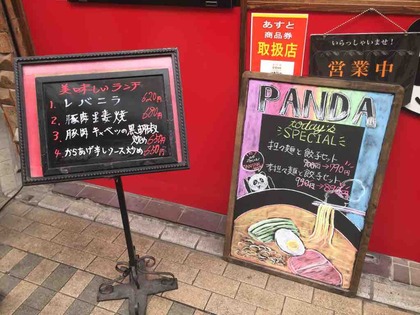 美味しいランチ
1. レバニラ 620円
2. 豚肉生姜焼 680円
3. 豚肉キャベツの黒胡椒
炒め 650円
4. からあげ辛しソース炒め 650円
あすと
商品券
取扱店
いらっしゃいませ!
営業中
PANDA
today's
SPECIAL
担々麺と餃子セット
本担々麺と餃子セット